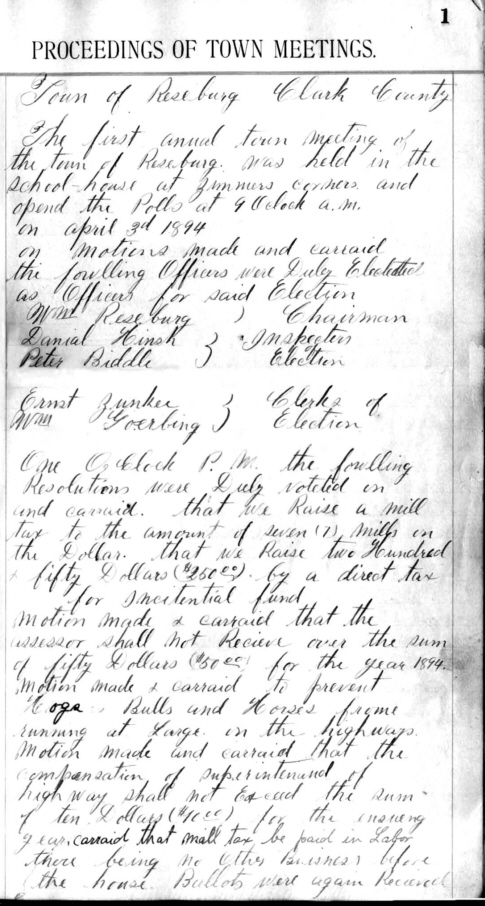 1
PROCEEDINGS OF TOWN MEETINGS.
Town of Reseburg Clark County
The first anual town meeting of
the town of Reseburg. was held in the
School-house at Zunners corners and
opend the Polls at 9 Oclock a.m.
on april 3d 1894
on motions made and carraid
the fowlling Officers were Duly Elected
as Officers for said Election
Wm Reseburg } Chairman
Danial Hinsh } Inspectors
Peter Biddle } Election
Ernst Zunker } Clerks of
Wm Goerbing } Election
One O,Clock P.M. the fowlling
Resolutions were Duly voteted on
and carraid. that we Raise a mill
tax to the amount of seven (7) mills on
the Dollar. that we Raise two Hundred
& fifty Dollars ($250 00). by a direct tax
for Incitential fund
Motion made & carraid that the
assessor shall not Recieve over the sum
of fifty Dollars ($50 00) for the year 1894.
Motion made & carraid to prevent
Hogs Bulls and Horses frome
running at Large. on the highways.
Motion made and carraid that the
compensation of superintenand of
highway shall not Excead the sum
of ten Dollars ($10 00) for the ensueng
year. carraid that mall tax be paid in Labor
there being no Other Buisness before
the house. Ballots were again Recieved